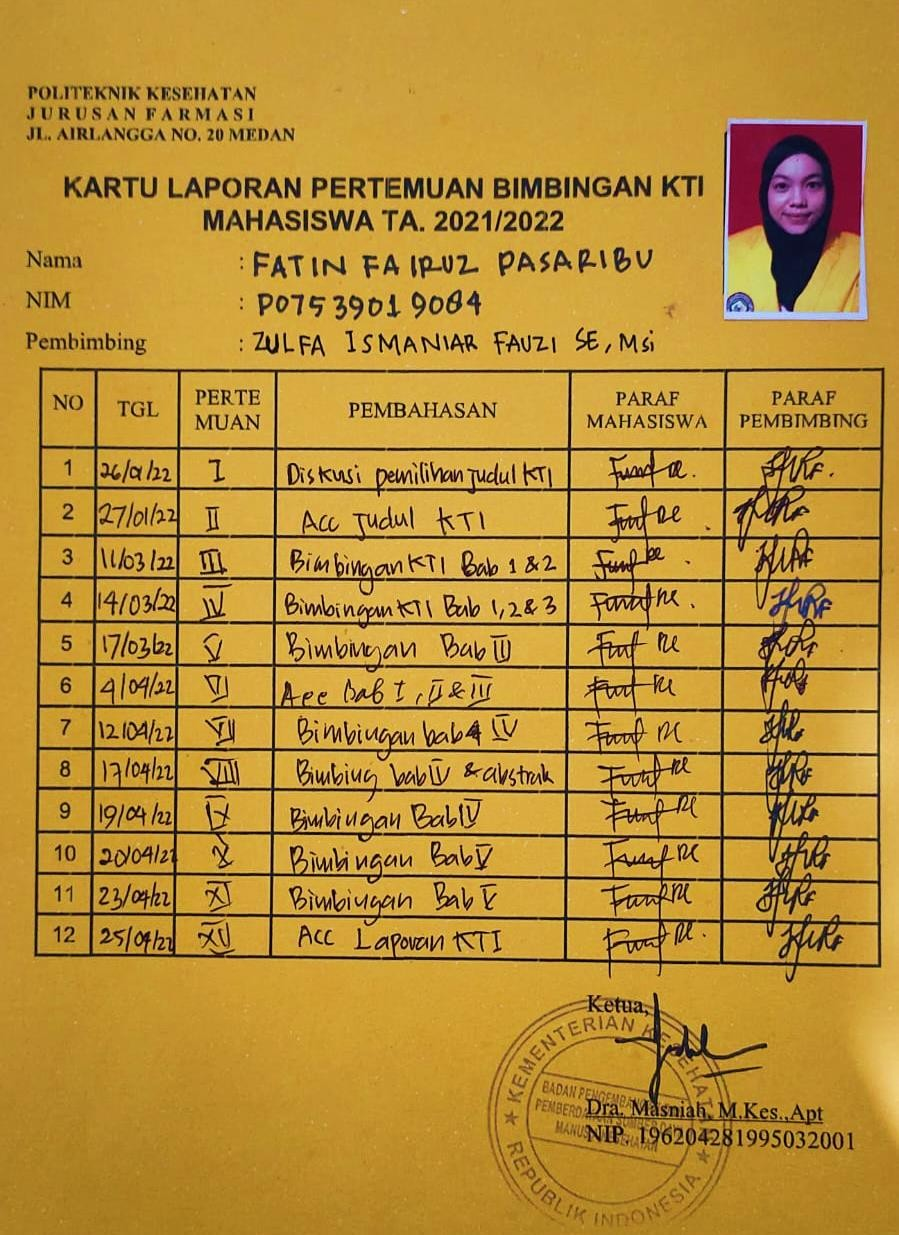 POLITEKNIK KESEHATAN
JURUSAN FARMASI
JL. AIRLANGGA NO. 20 MEDAN
KARTU LAPORAN PERTEMUAN BIMBINGAN KTI
MAHASISWA TA. 2021/2022
Nama : FATIN FAIRUZ PASARIBU
NIM : P07539019084
Pembimbing : ZULFA ISMANIAR FAUZI SE, Msi
NO TGL PERTE MUAN PEMBAHASAN PARAF MAHASISWA PARAF PEMBIMBING
1 26/01/22 I Diskusi pemilihan judul KTI
2 27/01/22 II Acc Judul KTI
3 11/03/22 III Bimbingan KTI Bab 1 & 2
4 14/03/22 IV Bimbingan KTI Bab 1, 2 & 3
5 17/03/22 V Bimbingan Bab III
6 4/04/22 VI Acc Bab I, II & III
7 12/04/22 VII Bimbingan bab 4 IV
8 17/04/22 VIII Bimbing bab IV & abstrak
9 19/04/22 IX Bimbingan Bab IV
10 20/04/22 X Bimbingan Bab V
11 23/04/22 XI Bimbingan Bab V
12 25/04/22 XII ACC Laporan KTI
Ketua,
KEMENTERIAN KESEHATAN
BADAN PENGEMBANGAN
PEMBERDAYAAN SUMBER DAYA
MANUSIA KESEHATAN
REPUBLIK INDONESIA
Dra. Masniah, M.Kes.,Apt
NIP. 196204281995032001